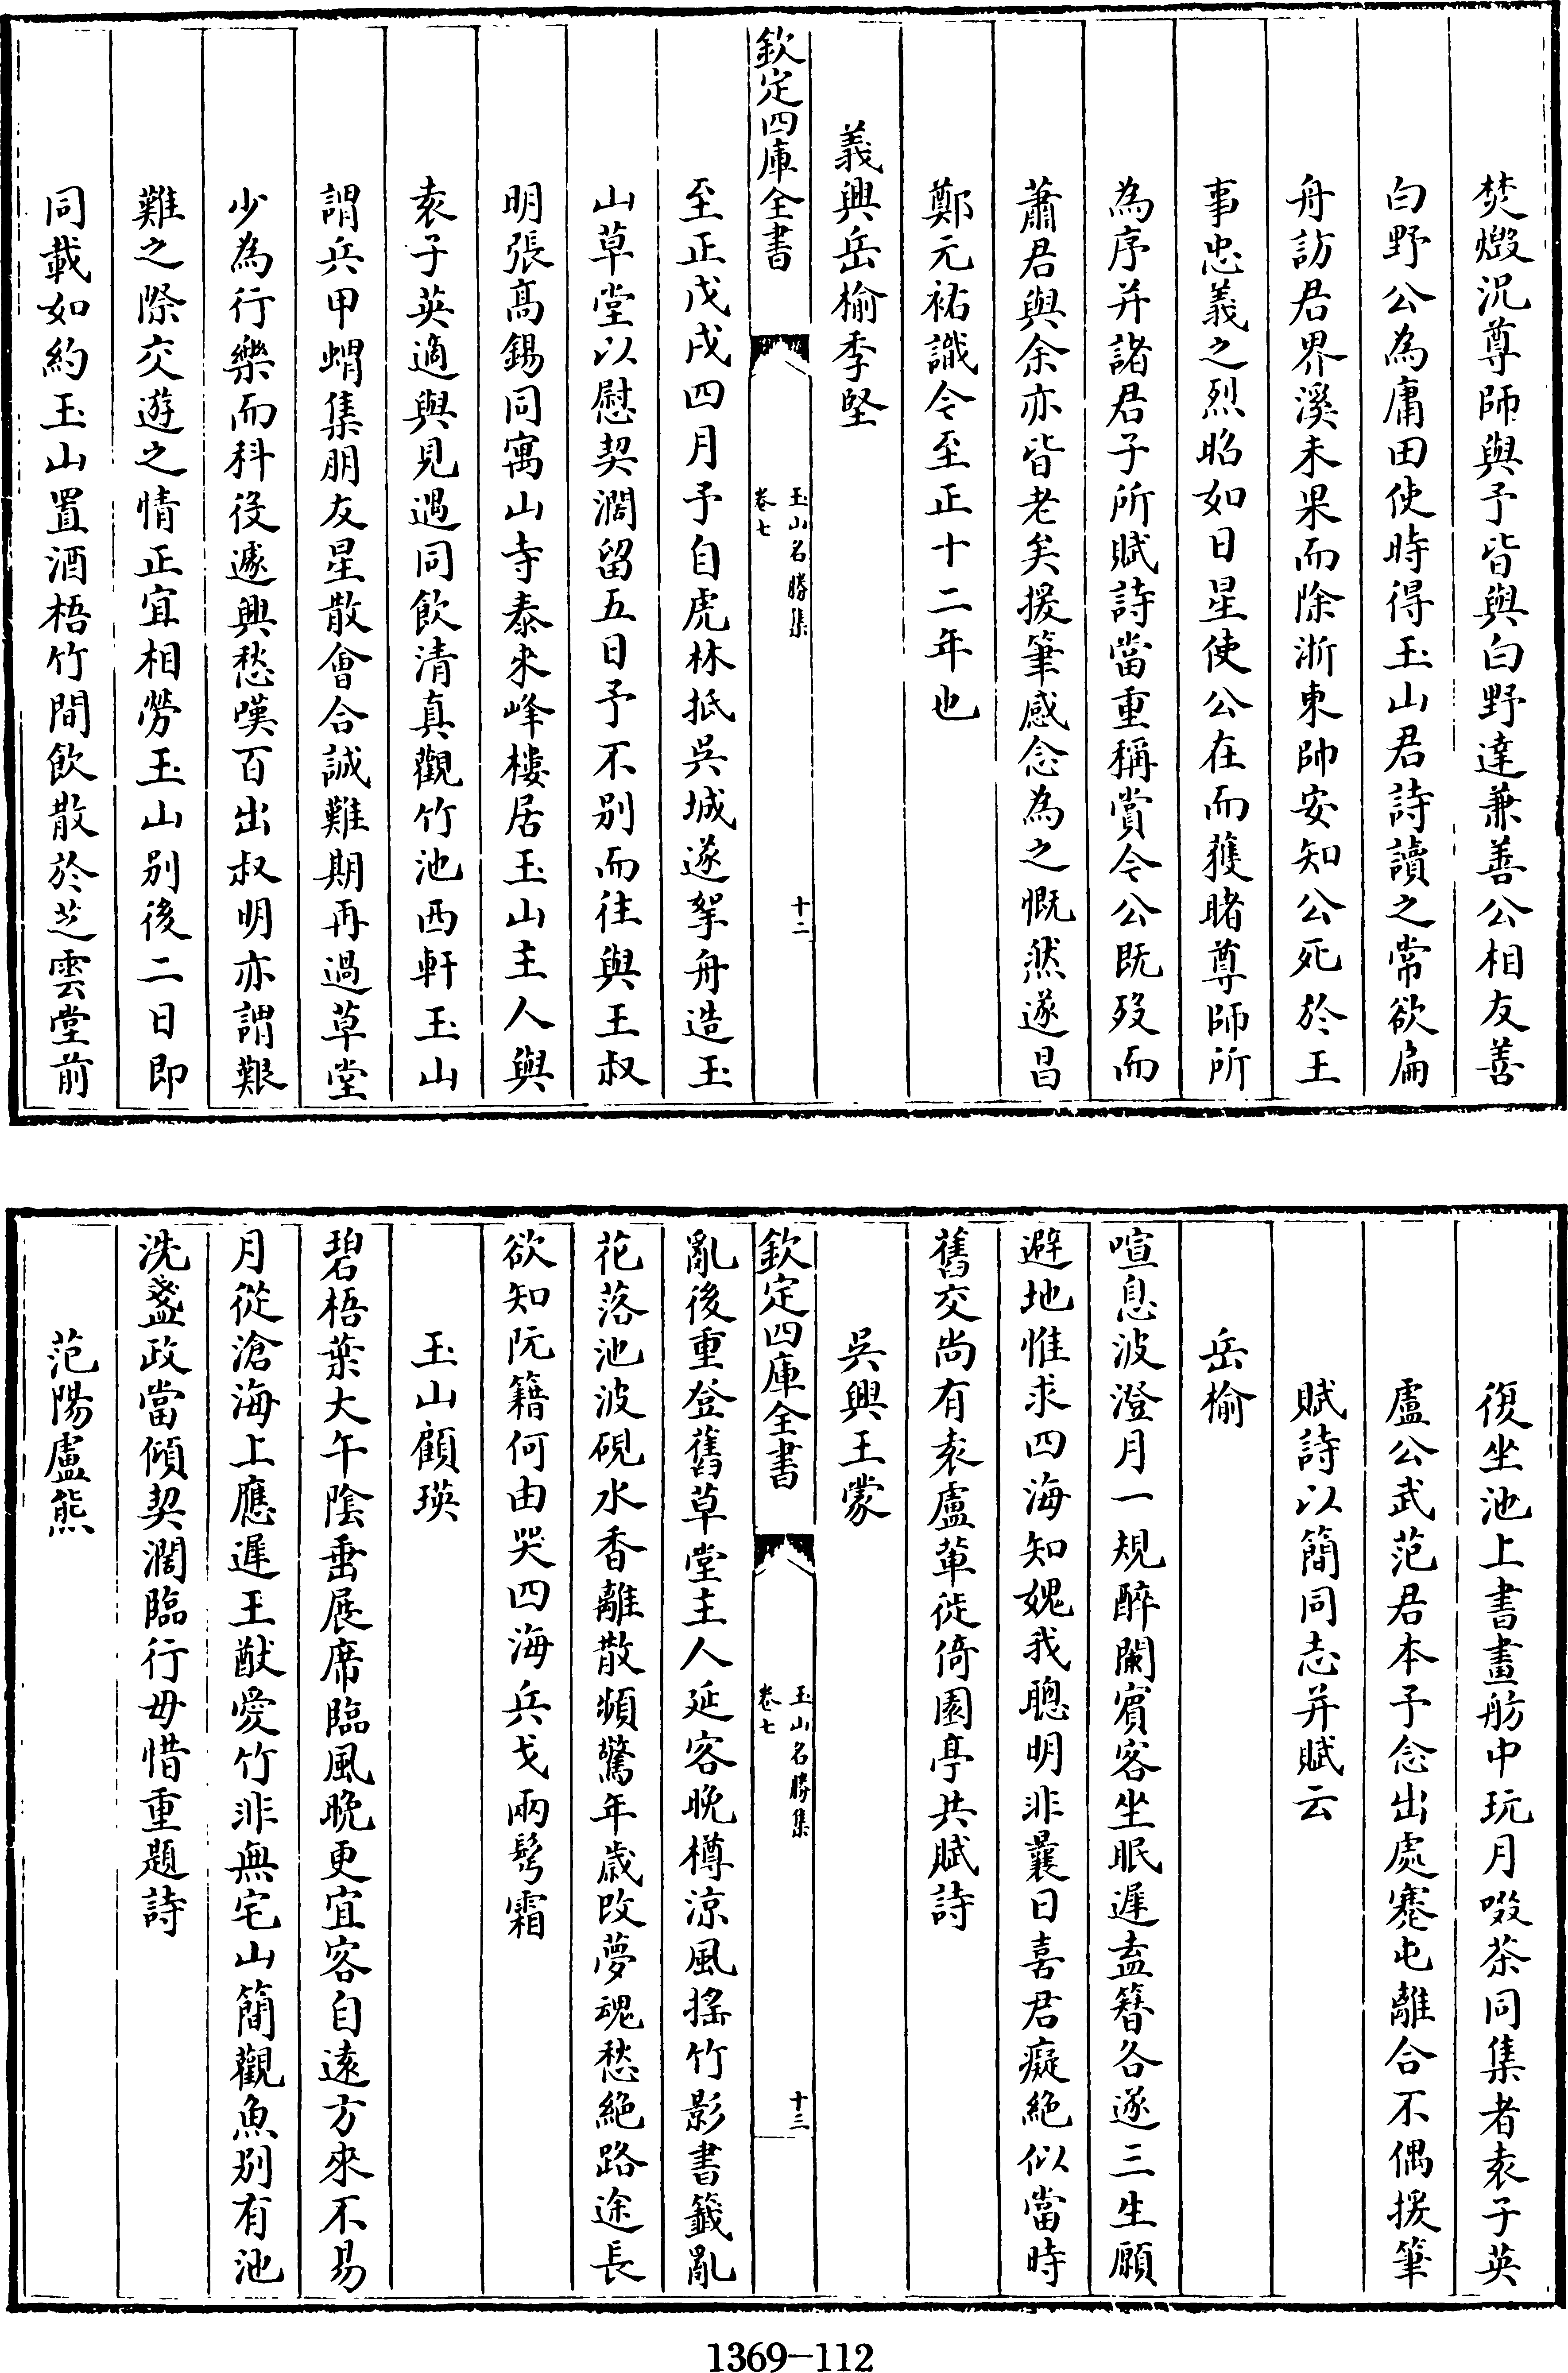 焚燬況尊師與予皆與白野達兼善公相友善
白野公為庸田使時得玉山君詩讀之常欲扁
舟訪君界溪未果而除浙東帥安知公死於王
事忠義之烈昭如日星使公在而獲睹尊師所
為序并諸君子所賦詩當重稱賞今公既歿而
蕭君與余亦皆老矣援筆感念為之慨然遂昌
鄭元祐識今至正十二年也
義興岳榆季堅
欽定四庫全書
玉山名勝集
卷七
十二
至正戊戌四月予自虎林抵吳城遂挐舟造玉
山草堂以慰契濶留五日予不别而往與王叔
明張高錫同寓山寺泰來峰樓居玉山主人與
袁子英適與見遇同飲清真觀竹池西軒玉山
謂兵甲蝟集朋友星散會合誠難期再過草堂
少為行樂而科役遽興愁嘆百出叔明亦謂艱
難之際交遊之情正宜相勞玉山别後二日即
同載如約玉山置酒梧竹間飲散於芝雲堂前
復坐池上書畫舫中玩月啜茶同集者袁子英
盧公武范君本予念出處蹇屯離合不偶援筆
賦詩以簡同志并賦云
岳榆
喧息波澄月一規醉闌賓客坐眠遲盍簪各遂三生願
避地惟求四海知媿我聰明非曩日喜君癡絶似當時
舊交尚有袁盧軰徙倚園亭共賦詩
吳興王蒙
欽定四庫全書
玉山名勝集
卷七
十三
亂後重登舊草堂主人延客晚樽涼風搖竹影書籤亂
花落池波硯水香離散頻驚年歳改夢魂愁絶路途長
欲知阮籍何由哭四海兵戈兩鬂霜
玉山顧瑛
碧梧葉大午隂垂展席臨風晚更宜客自遠方來不易
月從滄海上應遲王猷愛竹非無宅山簡觀魚别有池
洗盞政當傾契濶臨行毋惜重題詩
范陽盧熊
1369-112